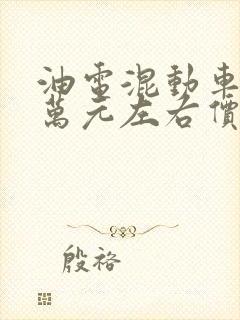 油電混動車
萬元左右價
殷袼